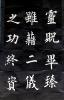 靈貺畢臻
雖藉二儀
之功終資